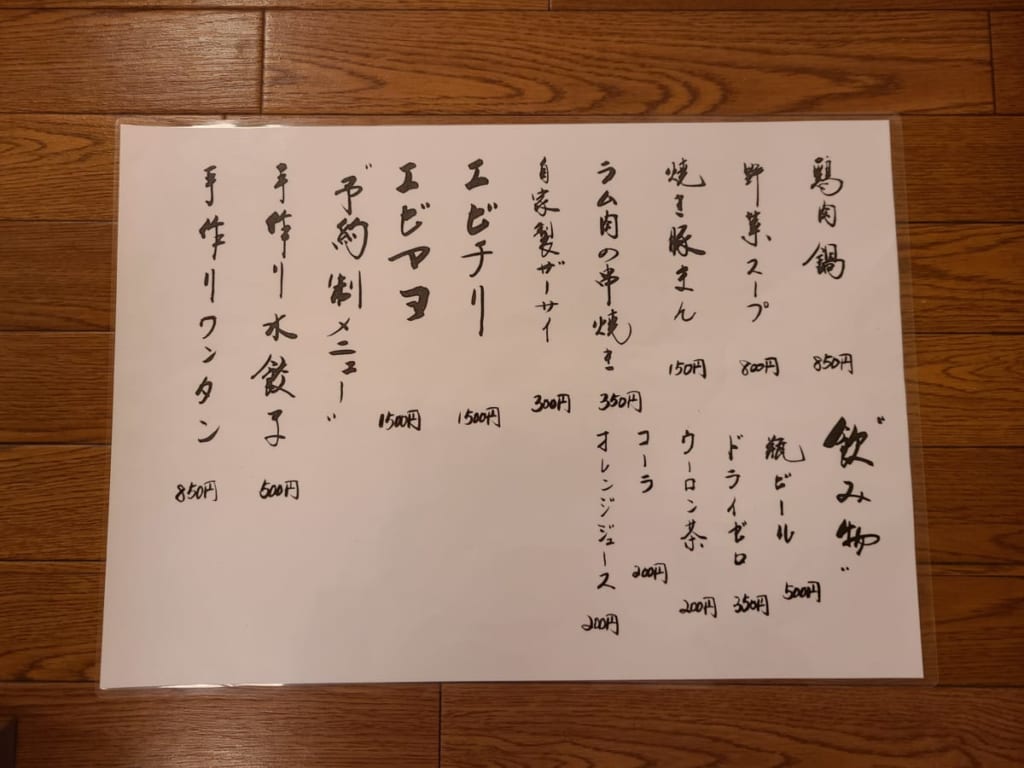 鶏肉鍋 850円
野菜スープ 800円
焼き豚まん 150円
ラム肉の串焼き 350円
自家製ザーサイ 300円
エビチリ 1500円
エビマヨ 1500円
"予約制メニュー"
手作り水餃子 500円
手作りワンタン 850円
"飲み物"
瓶ビール 500円
ドライゼロ 350円
ウーロン茶 200円
コーラ 200円
オレンジジュース 200円